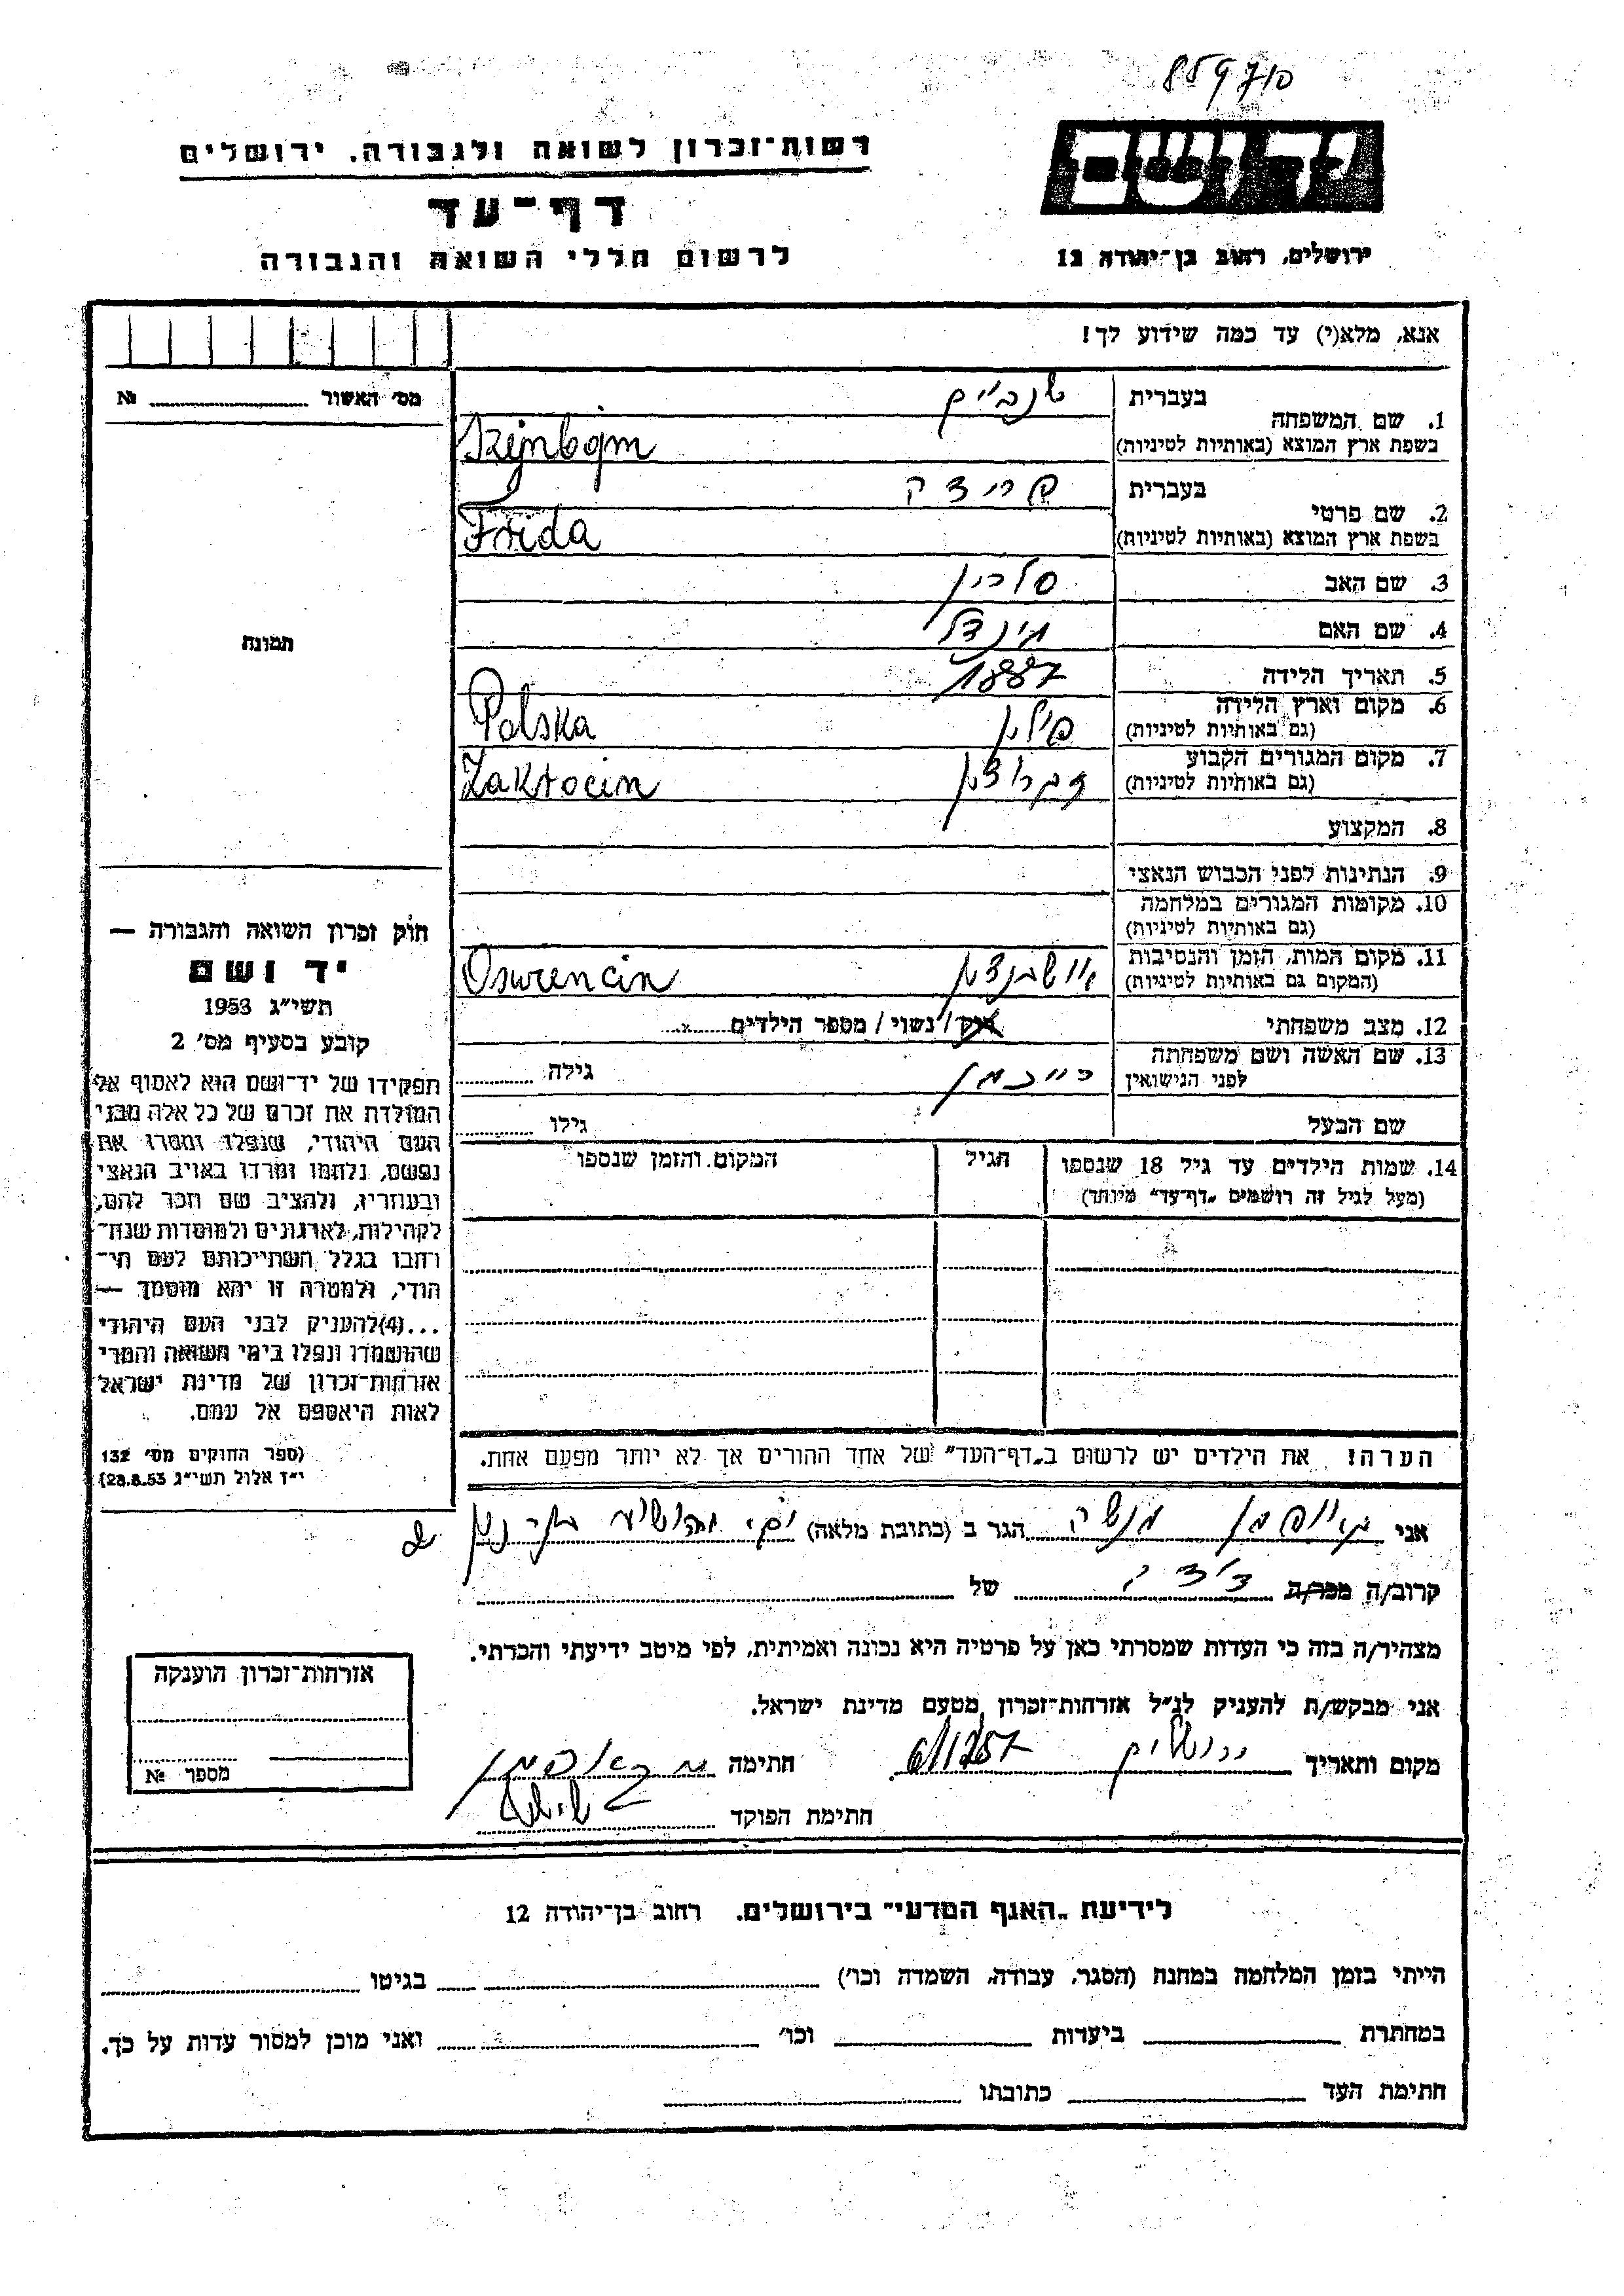 859710
רשות־זכרון לשואה ולגבורה. ירושלים
יד ושם
דף־עד
לרשום חללי השואה והגבורה
ירושלים, רחוב בן־יהודה 12
אנא, מלא(י) עד כמה שידוע לך!
מס' האשור № 
1. שם המשפחה
בעברית
בשפת ארץ המוצא (באותיות לטיניות)
2. שם פרטי
בעברית
בשפת ארץ המוצא (באותיות לטיניות)
Frida
3. שם האב
4. שם האם
הינדל
תמונה
5. תאריך הלידה 1887
6. מקום וארץ הלידה
(גם באותיות לטיניות)
פולין Polska
7. מקום המגורים הקבוע
(גם באותיות לטיניות)
8. המקצוע
9. הנתינות לפני הכבוש הנאצי
10. מקומות המגורים במלחמה
(גם באותיות לטיניות)
11. מקום המות, הזמן והנסיבות
(המקום גם באותיות לטיניות)
12. מצב משפחתי רווק / נשוי / מספר הילדים
13. שם האשה ושם משפחתה
לפני הנישואין
גילה
שם הבעל גילו
14. שמות הילדים עד גיל 18 שנספו
(מעל לגיל זה רושמים „דף־עד" מיוחד)
הגיל
המקום והזמן שנספו
הערה! את הילדים יש לרשום ב„דף־העד" של אחד ההורים אך לא יותר מפעם אחת.
חוק זכרון השואה והגבורה —
יד ושם
תשי"ג 1953
קובע בסעיף מס' 2
תפקידו של יד־ושם הוא לאסוף אל
המולדת את זכרם של כל אלה מבני
העם היהודי, שנפלו ומסרו את
נפשם, נלחמו ומרדו באויב הנאצי
ובעוזריו, ולהציב שם וזכר להם,
לקהילות, לארגונים ולמוסדות שנח־
רחבו בגלל השתייכותם לעם הי־
הודי, ולמטרה זו יהא מוסמך —
...(4)להעניק לבני העם היהודי
שהושמדו ונפלו בימי השואה והמרי
אזרחות־זכרון של מדינת ישראל
לאות היאספם אל עמם.
(ספר החוקים מס' 132
י"ז אלול תשי"ג 28.8.53)
אני מנשה הגר ב (כתובת מלאה)
קרוב/ה מכר/ה של
מצהיר/ה בזה כי העדות שמסרתי כאן על פרטיה היא נכונה ואמיתית, לפי מיטב ידיעתי והכרתי.
אני מבקש/ת להעניק לנ"ל אזרחות־זכרון מטעם מדינת ישראל.
מקום ותאריך ירושלים חתימה
חתימת הפוקד
אזרחות־זכרון הוענקה
מספר №
לידיעת „האגף המדעי" בירושלים. רחוב בן־יהודה 12
הייתי בזמן המלחמה במחנה (הסגר, עבודה, השמדה וכו') בגיטו
במחתרת ביערות וכו' ואני מוכן למסור עדות על כך.
חתימת העד כתובתו